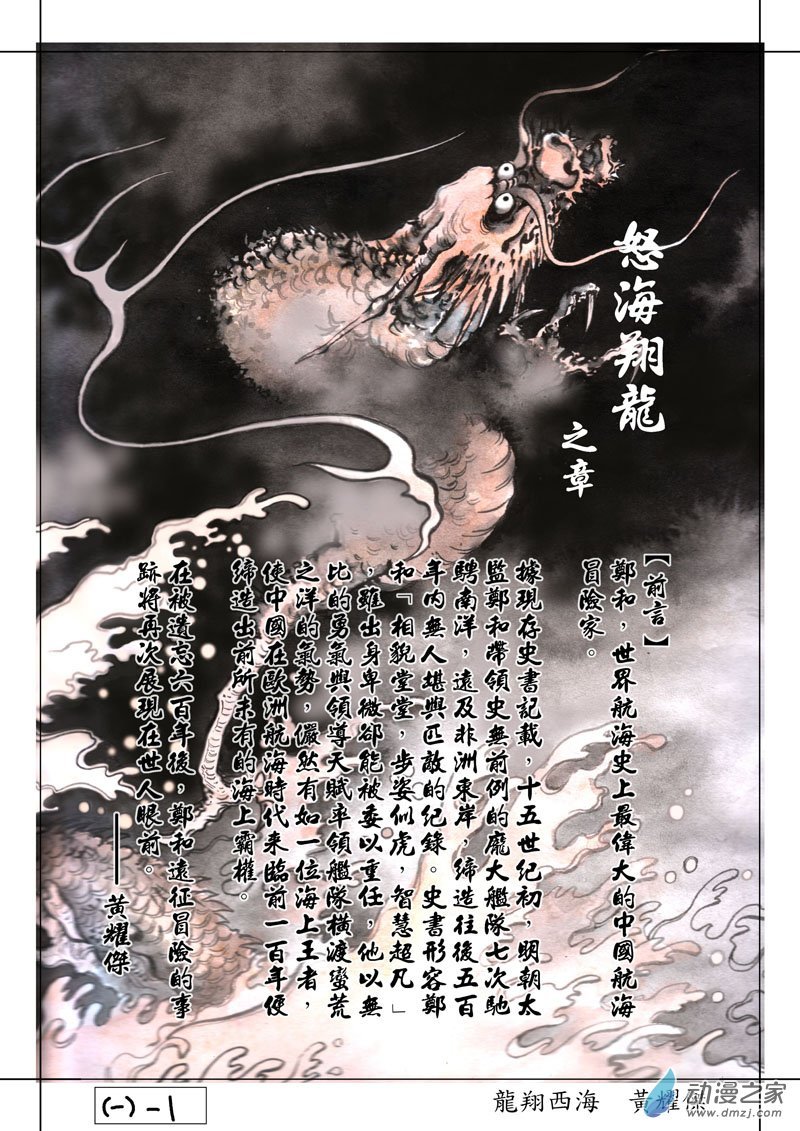 怒海翔龍
之章
【前言】
鄭和，世界航海史上最偉大的中國航海
冒險家。
據現存史書記載，十五世紀初，明朝太
監鄭和帶領史無前例的龐大艦隊七次馳
騁南洋，遠及非洲東岸，締造往後五百
年內無人堪與匹敵的紀錄。史書形容鄭
和「相貌堂堂，步姿似虎，智慧超凡」
，雖出身卑微卻能被委以重任，他以無
比的勇氣與領導天賦率領艦隊橫渡蠻荒
之洋的氣勢，儼然有如一位海上王者，
使中國在歐洲航海時代来臨前一百年便
締造出前所未有的海上霸權。
在被遺忘六百年後，鄭和遠征冒險的事
跡將再次展現在世人眼前。
——黃耀傑
(一)-1
龍翔西海　黃耀傑
动漫之家
www.dmzj.com